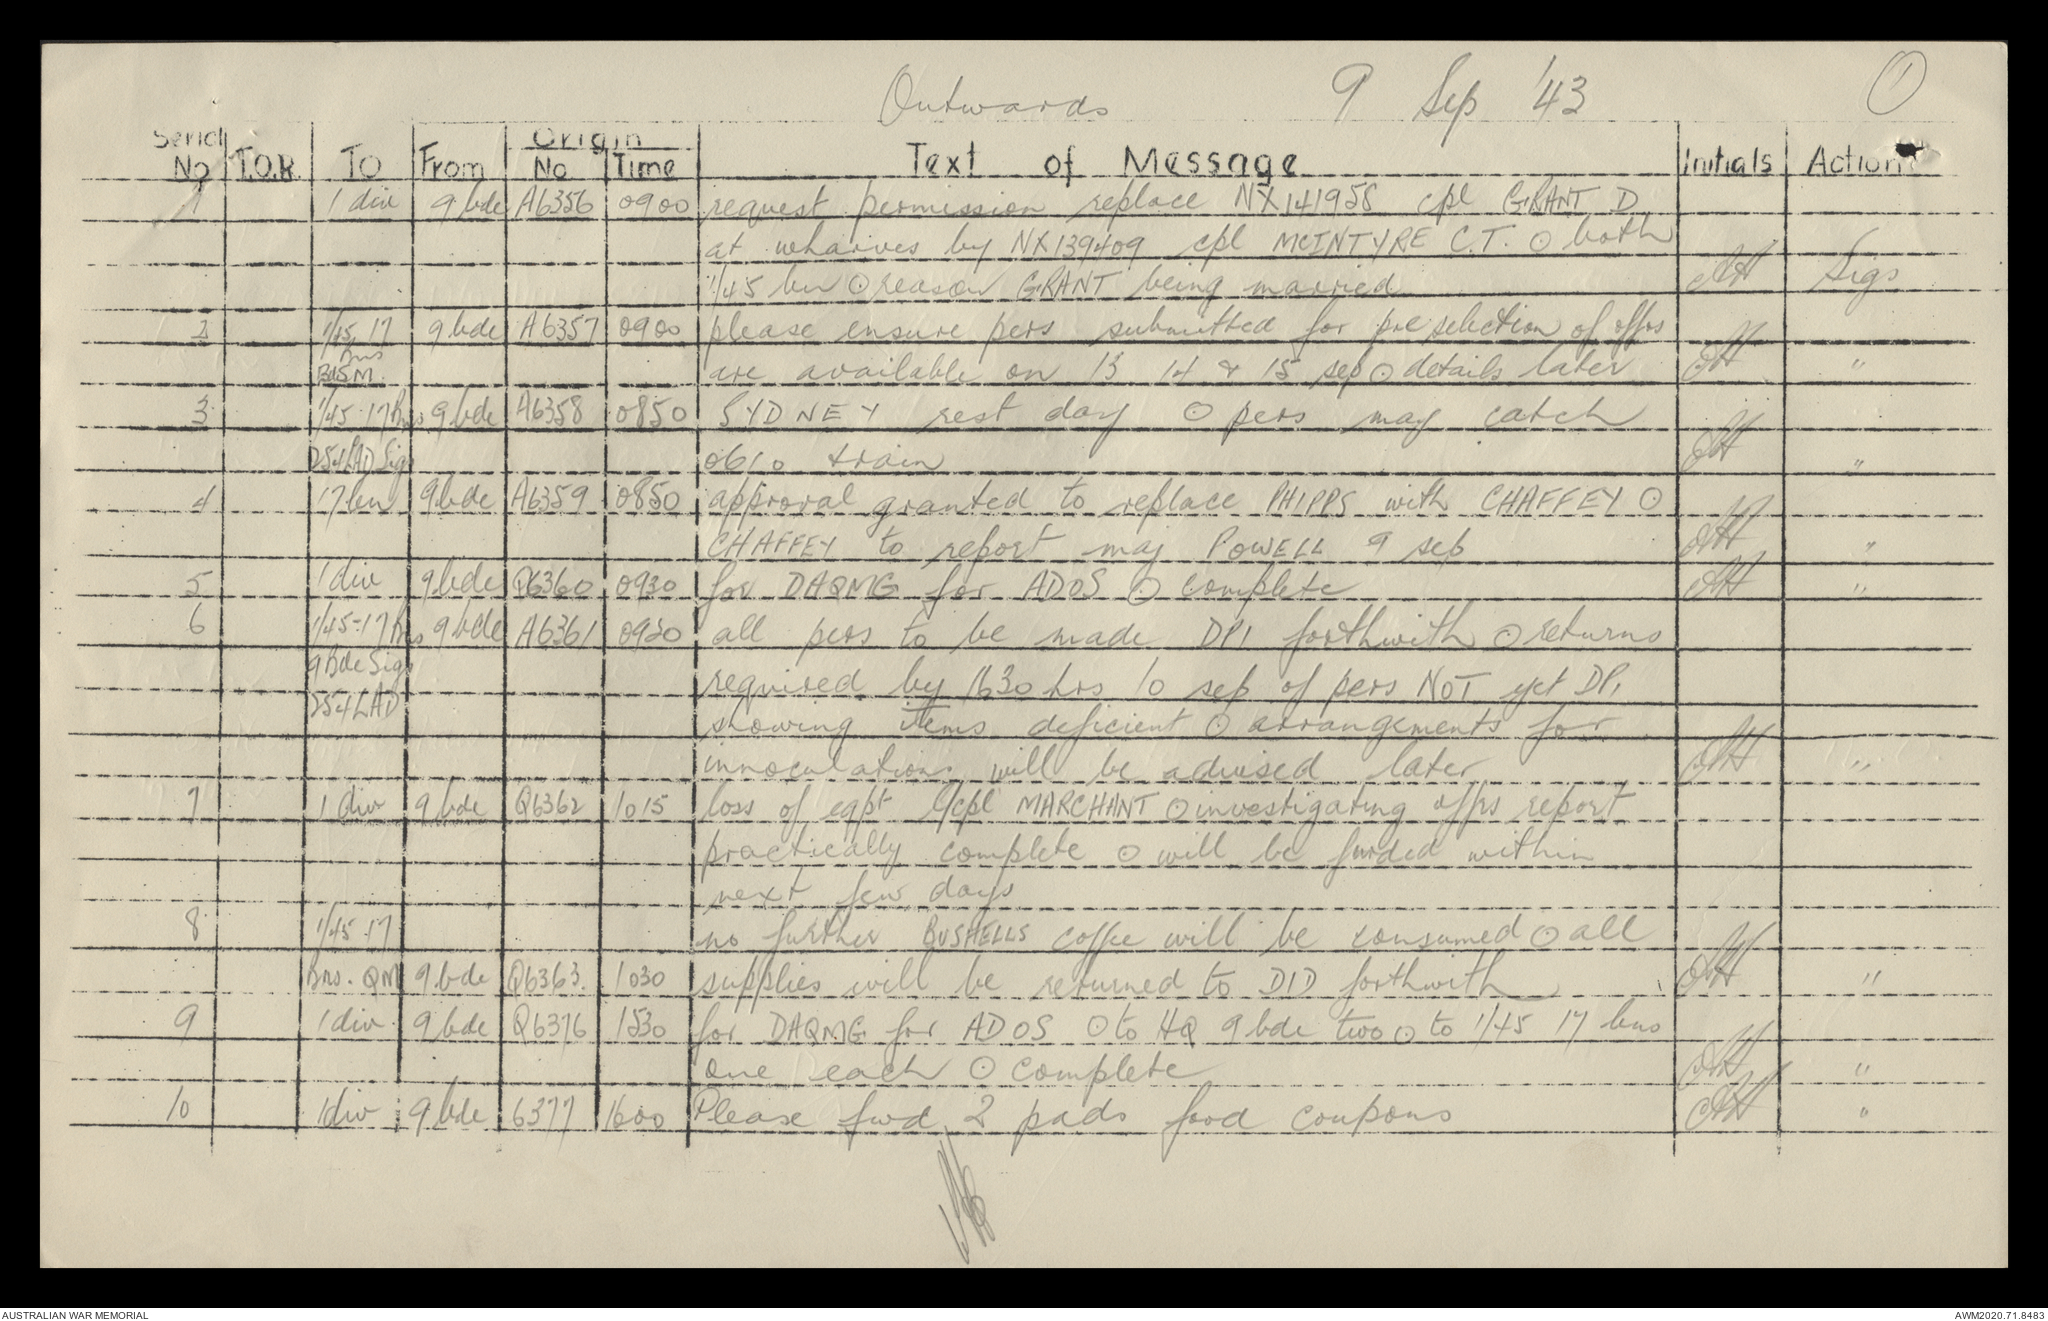 Outwards 9 Sep '43 1
Serial No T.O.R. TO From Origin No Time Text of Message Initials Action
1 1 div 9 bde A6356 0900 request permission replace NX141958 cpl GRANT D.
at wharives by NX139409 cpl MCINTYRE C.T. ⊙ both
1/45 bn ⊙ reason GRANT being married Sigs
2 1/45, 17 9 bde A6357 0900 please ensure pers submitted for pre selection of offrs
Bns
BdSM. are available on 13 14 & 15 sep ⊙ details later "
3 1/45-17 Bns 9 bde A6358 0850 SYDNEY rest day ⊙ pers may catch
254 LAD Sigs 0610 train "
4 17 bn 9 bde A6359 0850 approval granted to replace PHIPPS with CHAFFEY ⊙
CHAFFEY to report maj POWELL 9 sep "
5 1 div 9 bde Q6360 0930 for DAQMG for ADOS ⊙ complete "
6 1/45-17 Bns 9 bde A6361 0920 all pers to be made DP1 forthwith ⊙ returns
9 Bde Sigs
required by 1630 hrs 10 sep of pers NOT yet DP1
254 LAD
showing items deficient ⊙ arrangements for
innoculations will be advised later "
7 1 div 9 bde Q6362 1015 loss of eqpt l/cpl MARCHANT ⊙ investigating offrs report
practically complete ⊙ will be fwrded within
next few days
8 1/45-17 no further BUSHELLS coffee will be consumed ⊙ all
Bns. QM 9 bde Q6363. 1030 supplies will be returned to DID forthwith "
9 1 div. 9 bde Q6376 1530 for DAQMG for ADOS ⊙ to HQ 9 bde two ⊙ to 1/45 17 bns
one each ⊙ complete "
10 1 div 9 bde 6377 1600 Please fwd 2 pads food coupons "
AUSTRALIAN WAR MEMORIAL AWM2020.71.8483